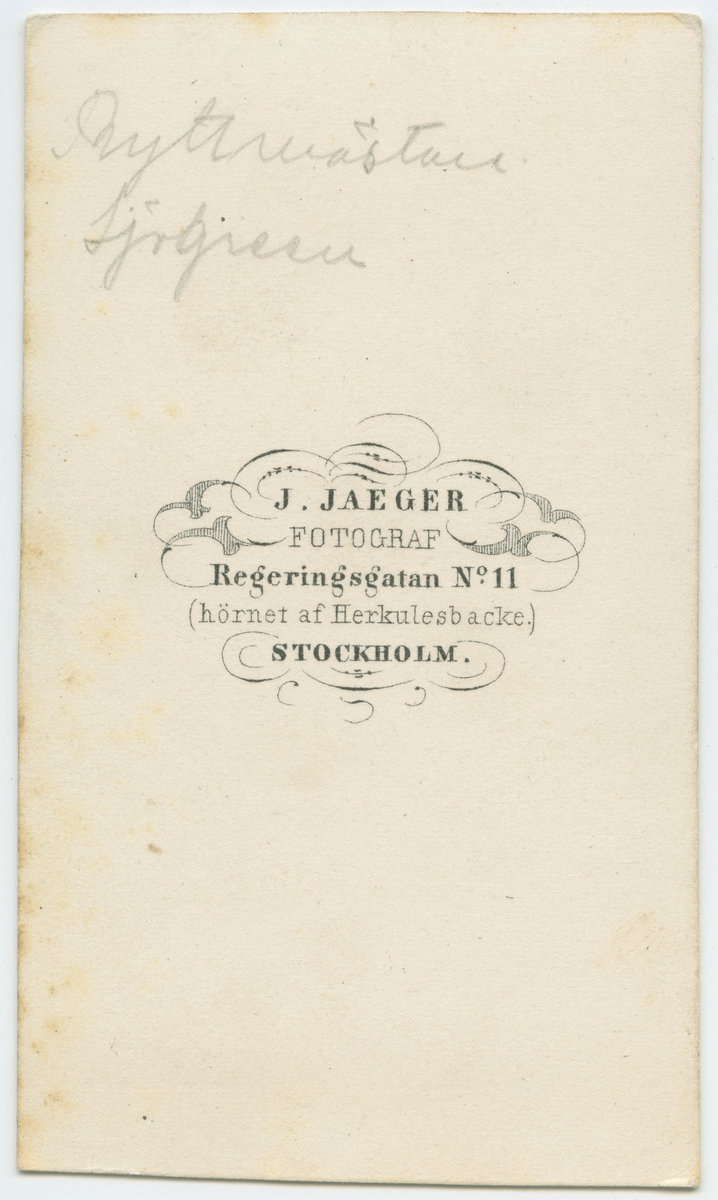 Ryttmästare
Sjögreen
J. JAEGER
FOTOGRAF
Regeringsgatan Nº 11
(hörnet af Herkulesbacke.)
STOCKHOLM.